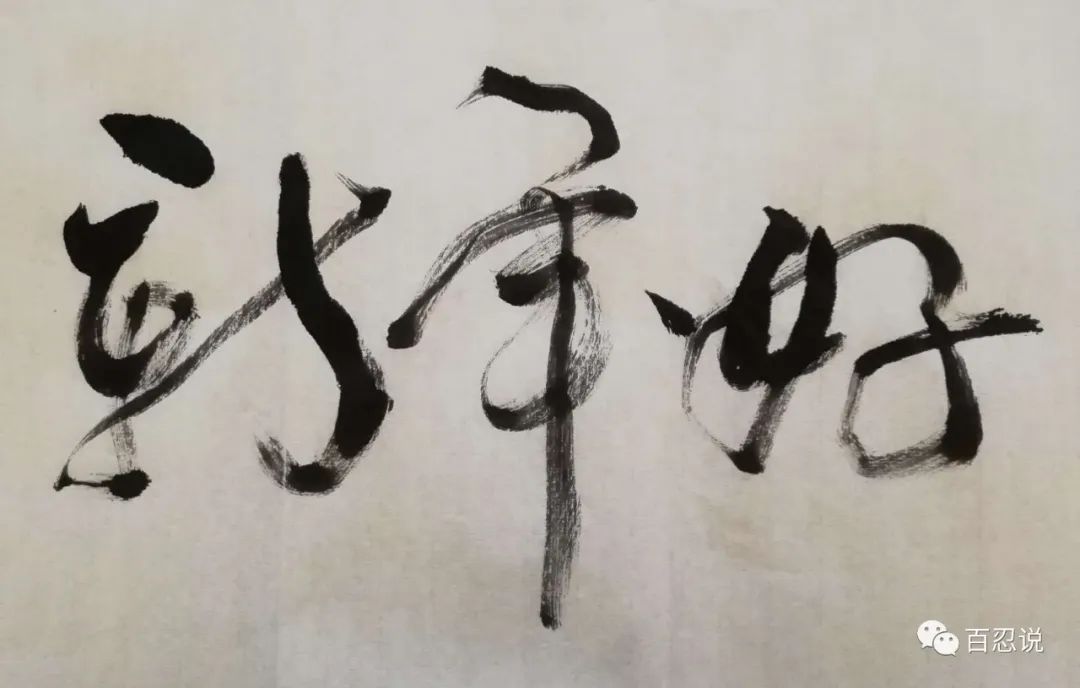 新年好
百忍说